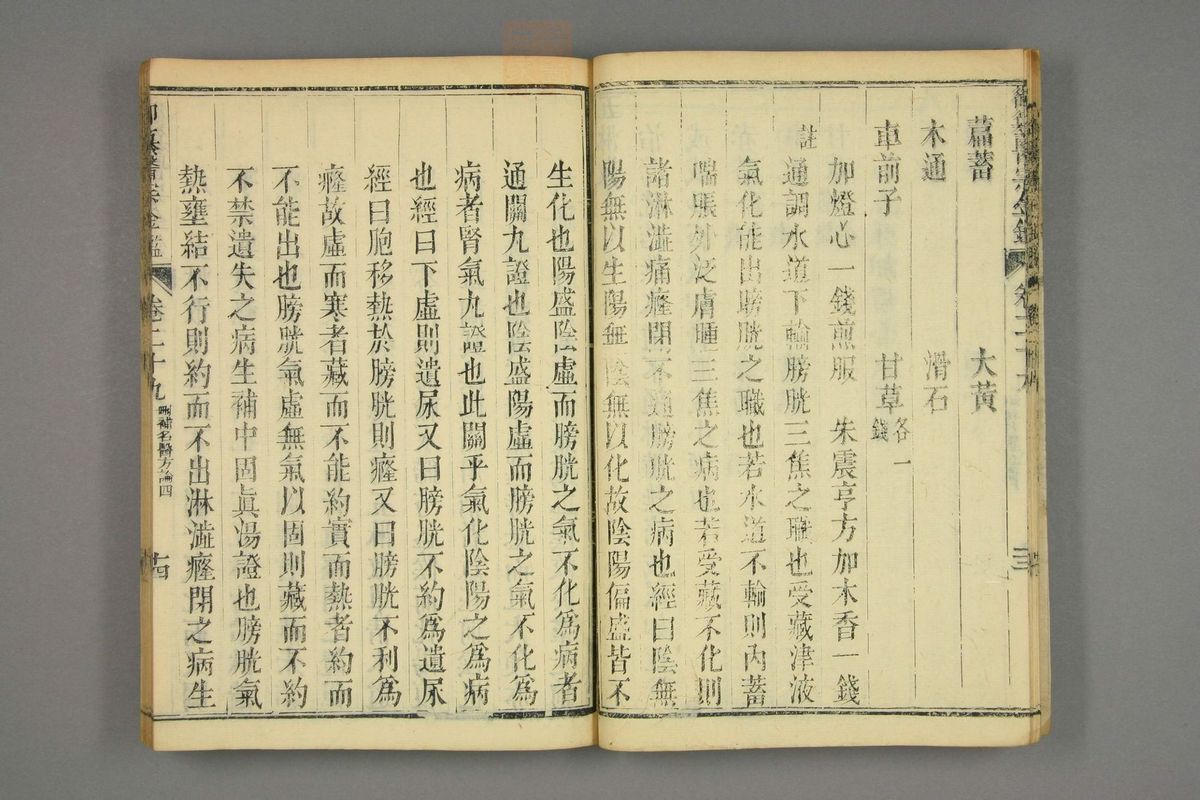 萹蓄　大黃
木通　滑石
車前子　甘草各一錢
加燈心一錢煎服　朱震亨方加木香一錢
註通調水道下輸膀胱三焦之職也受藏津液
氣化能出膀胱之職也若水道不輸則內蓄
喘脹外泛膚腫三焦之病也若受藏不化則
諸淋澁痛癃閉不通膀胱之病也經曰陰無
陽無以生陽無陰無以化故陰陽偏盛皆不
生化也陽盛陰虛而膀胱之氣不化爲病者
通關九證也陰盛陽虛而膀胱之氣不化爲
病者腎氣九證也此關乎氣化陰陽之爲病
也經曰下虛則遺尿又曰膀胱不約爲遺尿
經曰胞移熱於膀胱則癃又曰膀胱不利爲
癃故虛而寒者藏而不能約實而熱者約而
不能出也膀胱氣虛無氣以固則藏而不約
不禁遺失之病生補中固眞湯證也膀胱氣
熱壅結不行則約而不出淋澁癃閉之病生
御纂醫宗金鑑　卷二十九　刪補名醫方論四　十四